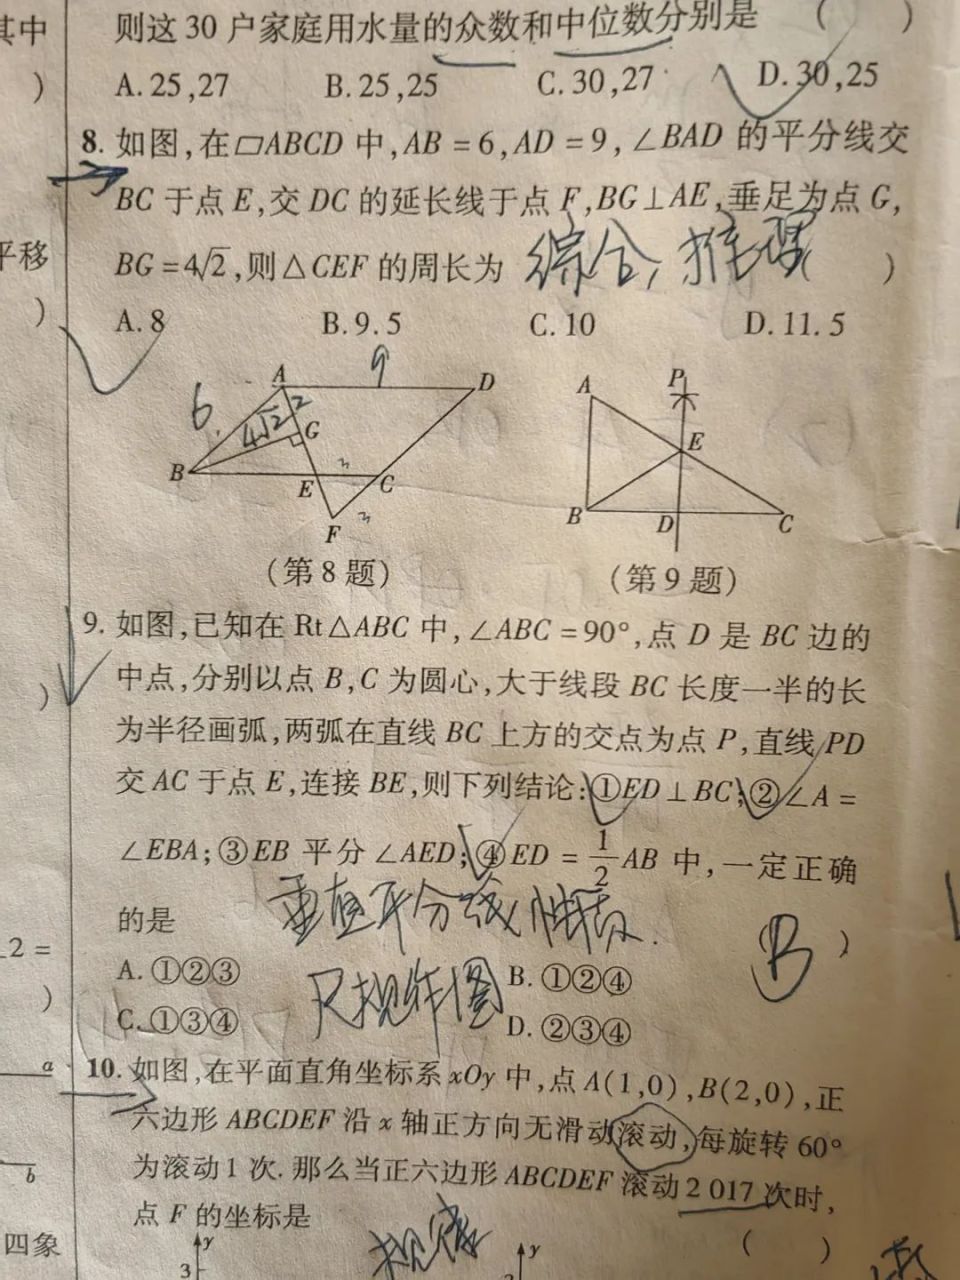 则这 30 户家庭用水量的众数和中位数分别是 ( )
其中
) A. 25,27 B. 25,25 C. 30,27 D. 30,25
8. 如图,在▱ABCD 中,AB = 6,AD = 9,∠BAD 的平分线交
BC 于点 E,交 DC 的延长线于点 F,BG⊥AE,垂足为点 G,
平移 BG = 4√2,则△CEF 的周长为 综合, ( )
) A. 8 B. 9. 5 C. 10 D. 11. 5
9
A D P
6 4√2 2 G A E
B E 3 C B D C
F 3
(第 8 题) (第 9 题)
9. 如图,已知在 Rt△ABC 中,∠ABC = 90°,点 D 是 BC 边的
) 中点,分别以点 B,C 为圆心,大于线段 BC 长度一半的长
为半径画弧,两弧在直线 BC 上方的交点为点 P,直线 PD
交 AC 于点 E,连接 BE,则下列结论:①ED⊥BC;②∠A =
∠EBA;③EB 平分∠AED;④ED = 1/2 AB 中,一定正确
的是 垂直平分线 (B)
2 =
A. ①②③ B. ①②④
) C. ①③④ 尺规作图 D. ②③④
a 10. 如图,在平面直角坐标系 xOy 中,点 A(1,0),B(2,0),正
六边形 ABCDEF 沿 x 轴正方向无滑动滚动,每旋转 60°
b 为滚动 1 次. 那么当正六边形 ABCDEF 滚动 2 017 次时,
点 F 的坐标是 ( )
四象 y y
3